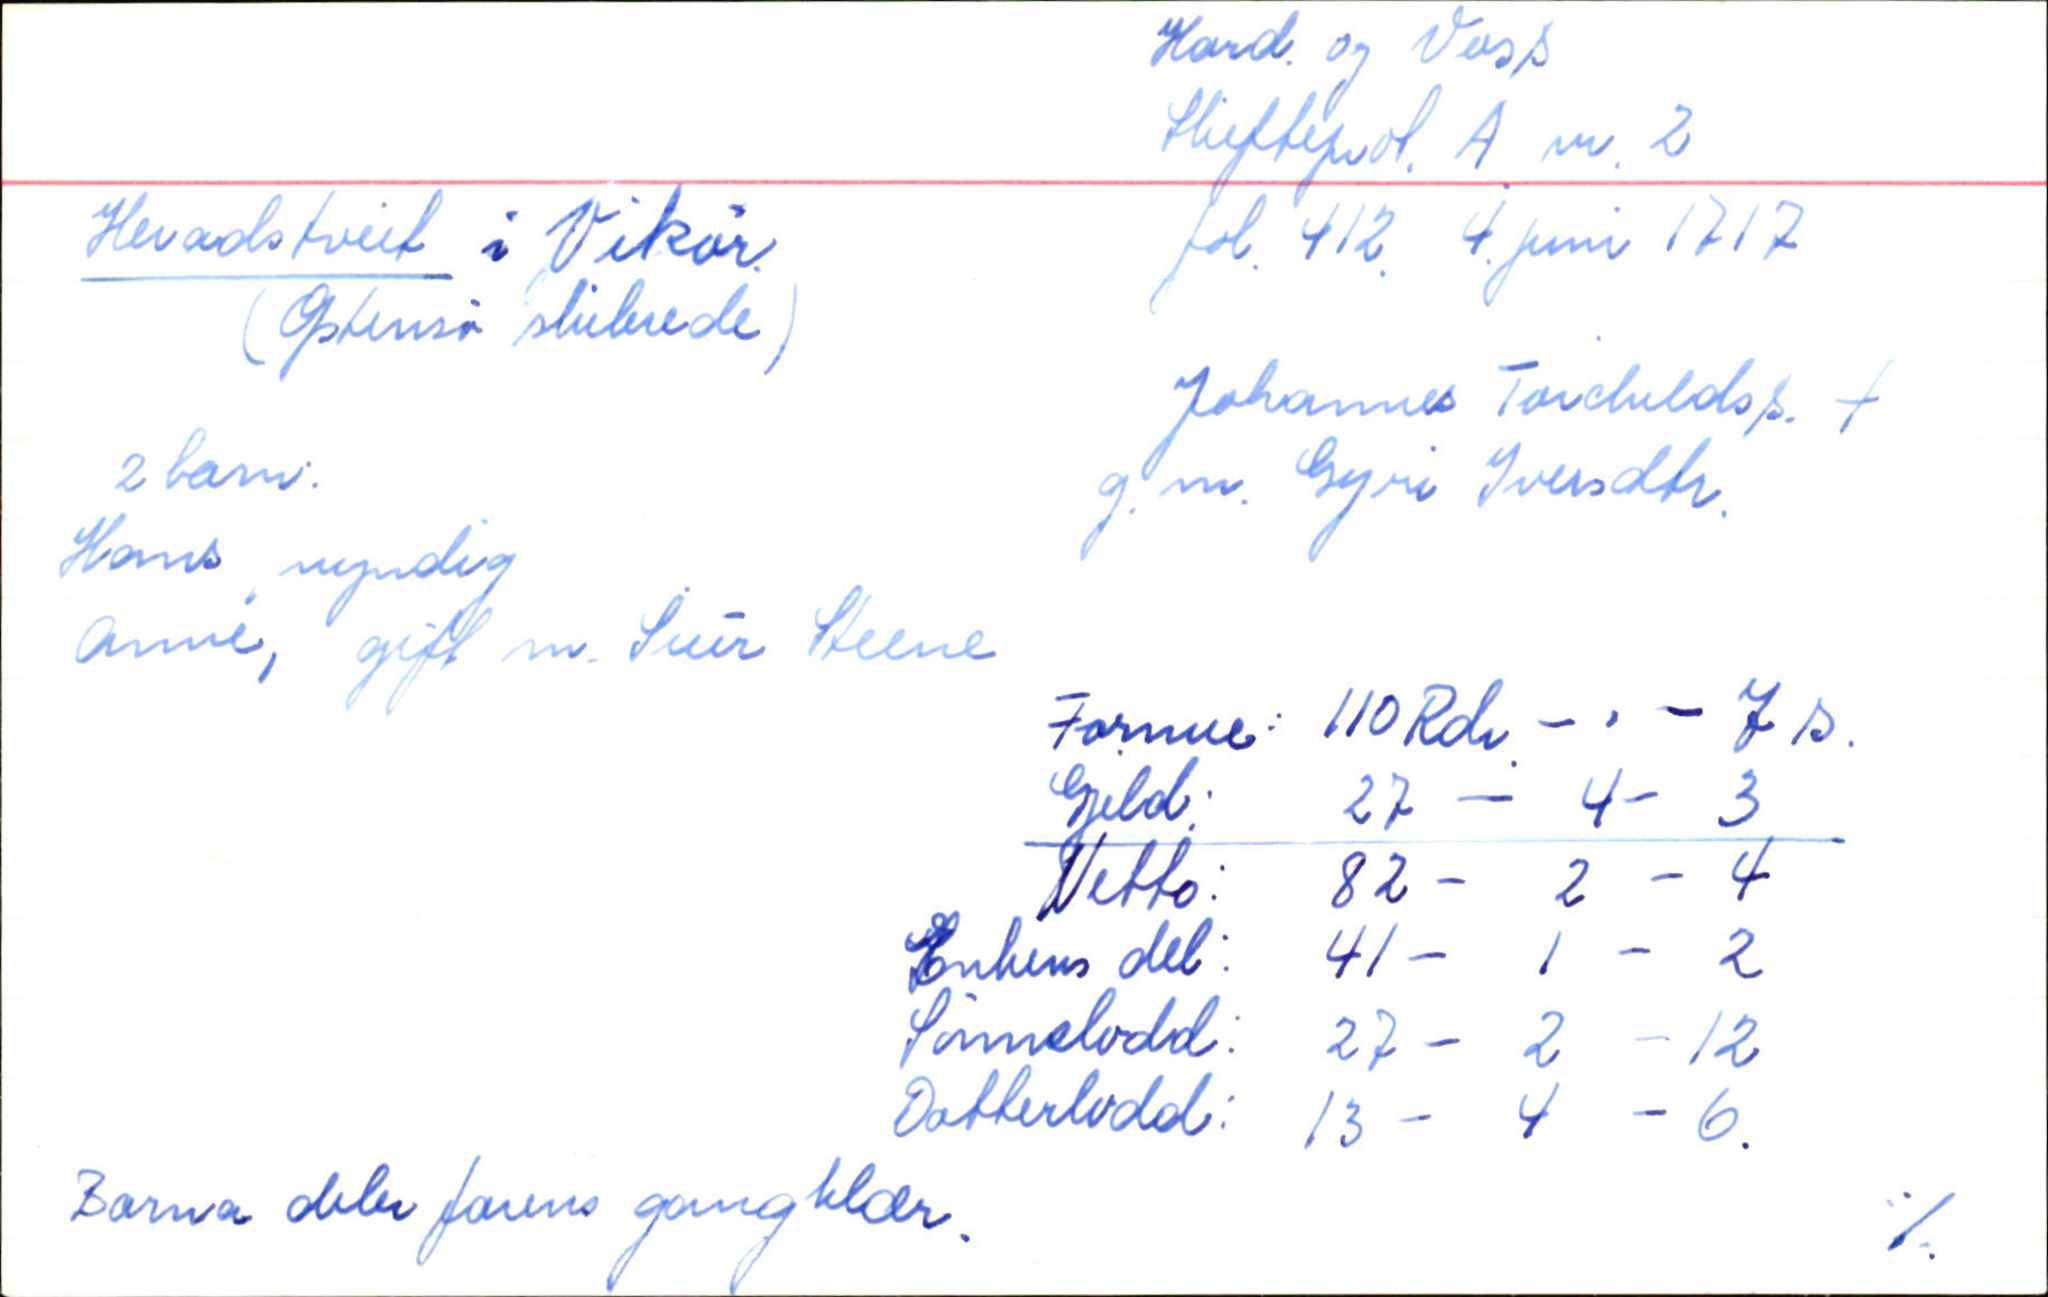 Hard. og Voss
Skifteprot. A nr. 2
fol. 412. 4. juni 1717
Heradstveit i Vikør.
(Østensø skibrede)
Johannes Torchildss. †
g. m. Gyri Iversdtr.
2 barn:
Hans, myndig
Anne, gift m. Siur Steene
Formue: 110 Rdr. - . - 7 s.
Gjeld: 27 - 4 - 3
Netto: 82 - 2 - 4
Enkens del: 41 - 1 - 2
Sønnelodd: 27 - 2 - 12
Dotterlodd: 13 - 4 - 6.
Barna deler farens gangklær.
·/.